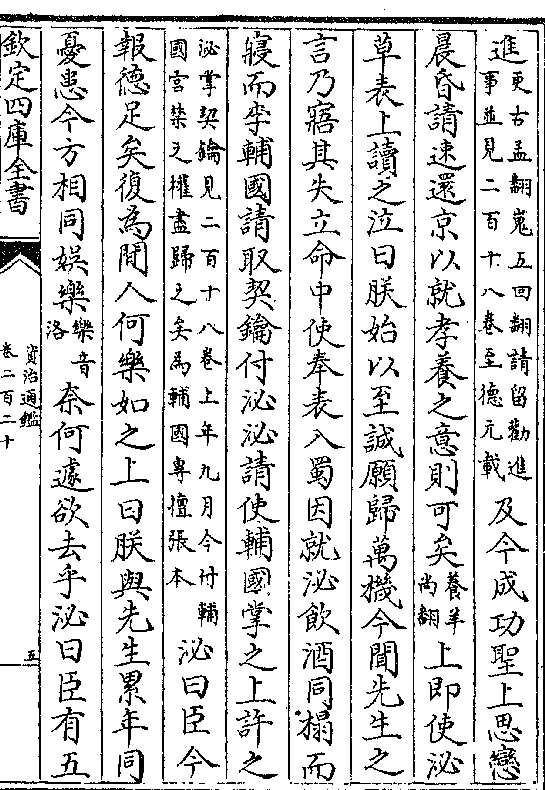 進更古孟翻嵬五回翻請留勸進事並見二百十八卷至德元載及今成功聖上思戀
晨昏請速還京以就孝養之意則可矣養羊尚翻上即使泌
草表上讀之泣曰朕始以至誠願歸萬機今聞先生之
言乃寤其失立命中使奉表入蜀因就泌飲酒同榻而
寢而李輔國請取契鑰付泌泌請使輔國掌之上許之
泌掌契鑰見二百十八卷上年九月今付輔國宮禁之權盡歸之矣為輔國專擅張本泌曰臣今
報德足矣復為間人何樂如之上曰朕與先生累年同
憂患今方相同娛樂樂音洛奈何遽欲去乎泌曰臣有五
欽定四庫全書
資治通鑑
卷二百二十
五